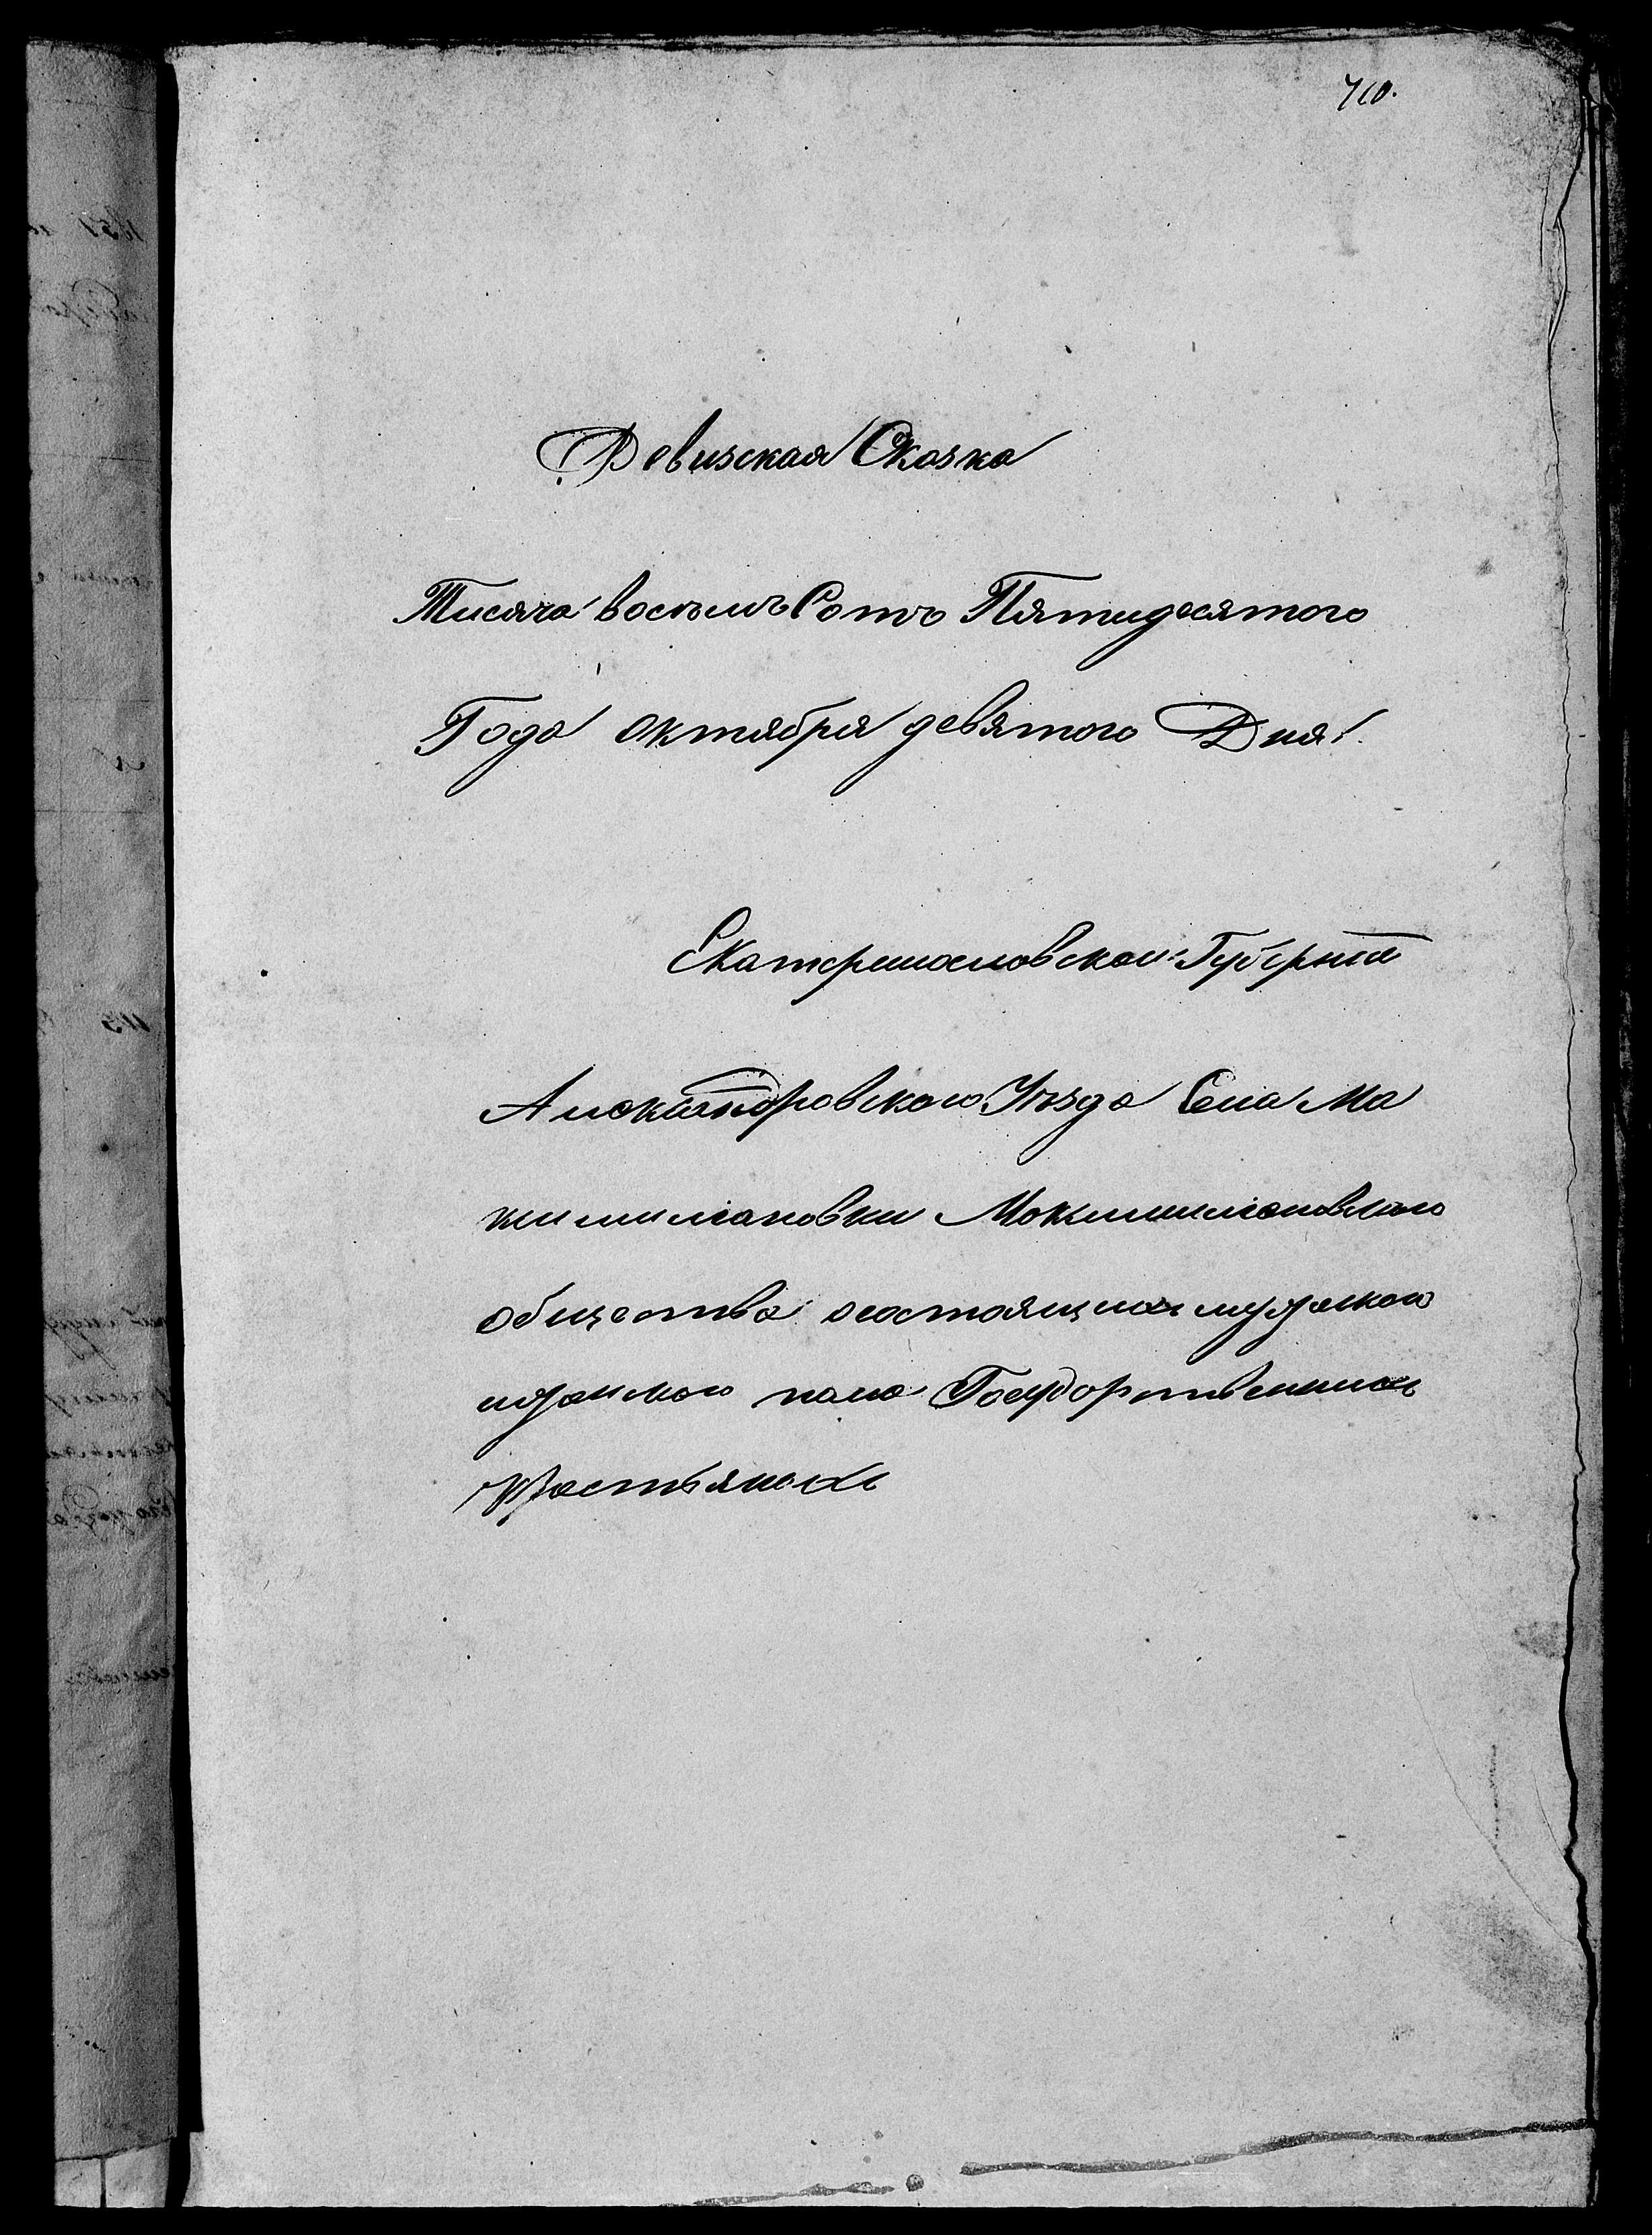 710.
Ревизская Сказка
Тисяча восъмъ Сотъ Пятидесятого
Года октября девятого Дня
Екатеринославской Губерніи
Александровского Уезда Села Ма
ксимиляновки Максимиляновского
общества состоящихъ мужеского
женского пола Государственныхъ
крестьянахъ